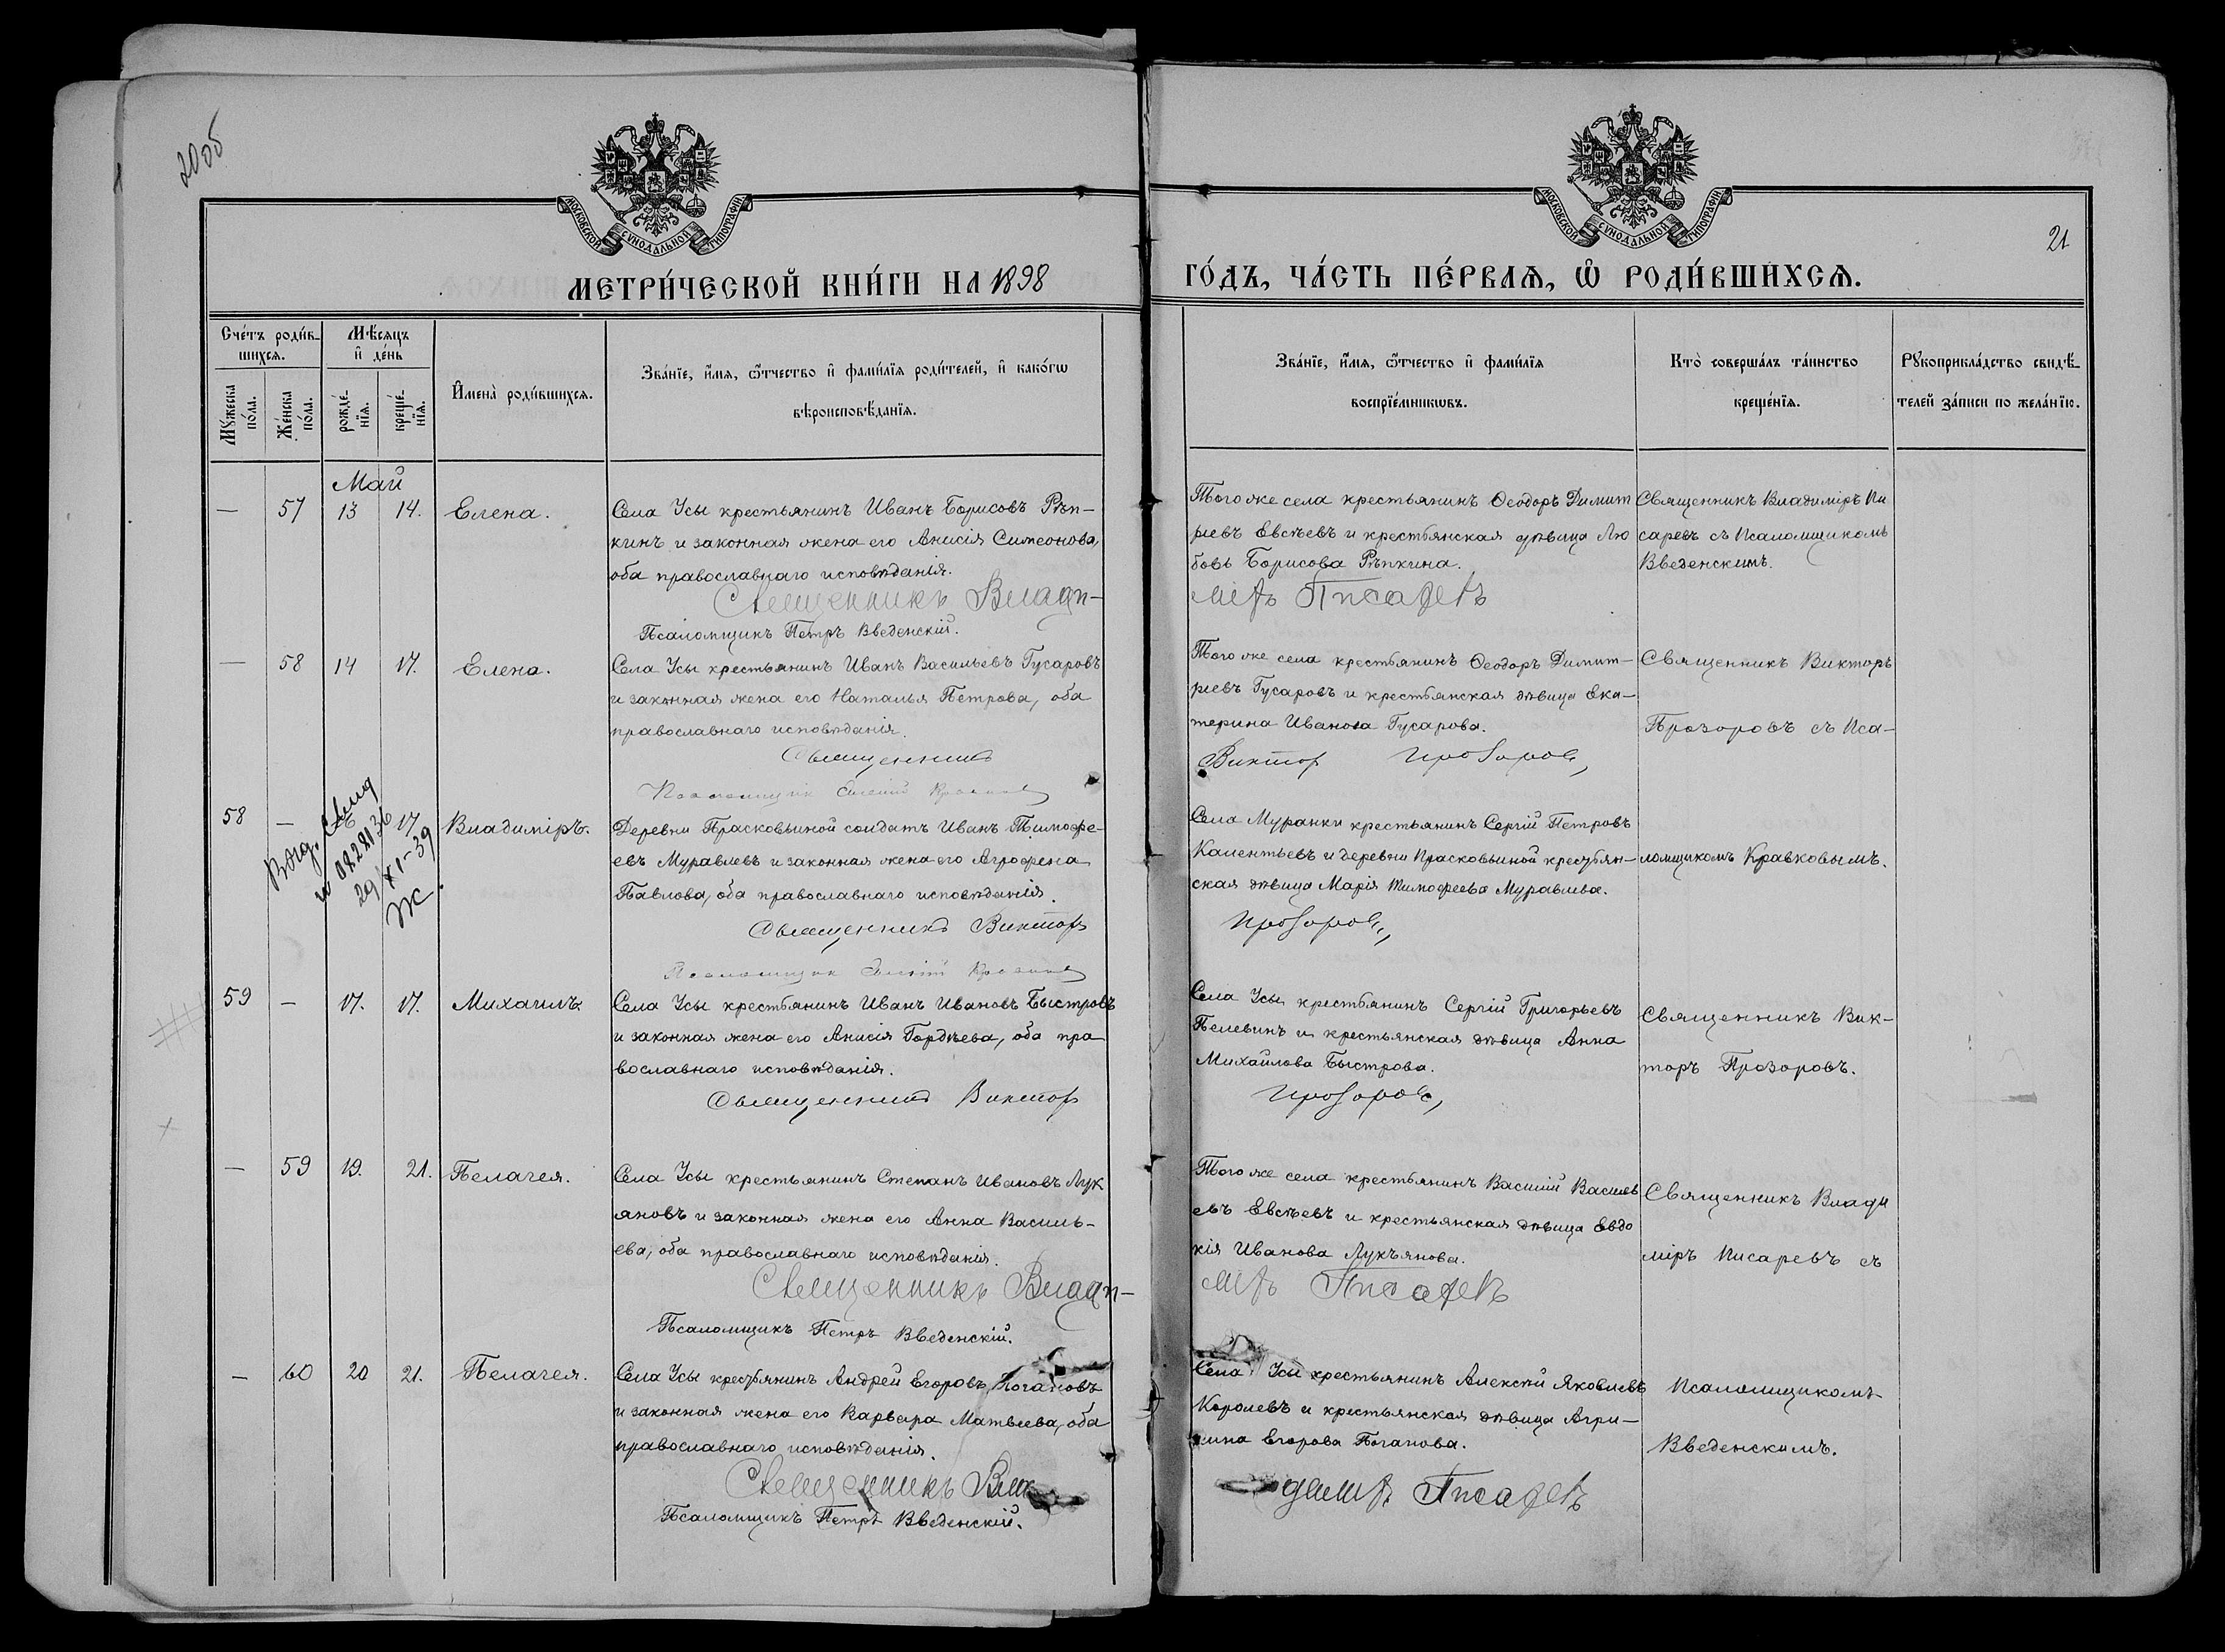 20об
21
МОСКОВСКОЙ СѴНОДАЛЬНОЙ ТИПОГРАФІИ
МОСКОВСКОЙ СѴНОДАЛЬНОЙ ТИПОГРАФІИ
МЕТРИ́ЧЕСКОЙ КНИ́ГИ НА 1898
ГО́ДЪ, ЧА́СТЬ ПЕ́РВАѦ, Ѡ РОДИ́ВШИХСѦ.
Сче́тъ роди́в-
шихсѧ.
Мѣ́сѧцъ
и҆ де́нь
Мꙋ́жеска
по́ла.
Же́нска
по́ла.
рожде́-
нїѧ.
креще́-
нїѧ.
И҆мена̀ роди́вшихсѧ.
Зва́нїе, и҆́мѧ, ѻ҆́тчество и҆ фами́лїѧ роди́телей, и҆ како́гѡ
вѣроисповѣ́данїѧ.
Зва́нїе, и҆́мѧ, ѻ҆́тчество и҆ фами́лїѧ
воспрїе́мникѡвъ.
Кто̀ соверша́лъ та́инство
креще́нїѧ.
Рꙋкоприкла́дство свидѣ́-
телей за́писи по жела́нїю.
Май
— 57 13 14. Елена.
Села Усы крестьянинъ Иванъ Борисовъ Рѣп-
кинъ и законная жена его Анисія Симеонова,
оба православнаго исповѣданія.
Священникъ Влади-
Псаломщикъ Петръ Введенскій.
Того же села крестьянинъ Ѳеодоръ Димит
ріевъ Евсѣевъ и крестьянская дѣвица Лю
бовь Борисова Рѣпкина.
міръ Писаревъ
Священникъ Владиміръ Пи
саревъ съ Псаломщикомъ
Введенскимъ.
— 58 14 17. Елена.
Села Усы крестьянинъ Иванъ Васильевъ Гусаровъ
и законная жена его Наталья Петрова, оба
православнаго исповѣданія.
Священникъ
Псаломщикъ
Того же села крестьянинъ Ѳеодоръ Димит-
ріевъ Гусаровъ и крестьянская дѣвица Ека-
терина Иванова Гусарова.
Викторъ Прозоровъ
Священникъ Викторъ
Прозоровъ съ Пса-
58 — 17 Владиміръ.
29/XI-39
Деревни Прасковьиной солдатъ Иванъ Тимофе-
евъ Муравлевъ и законная жена его Агрофена
Павлова, оба православнаго исповѣданія.
Священникъ Викторъ
Псаломщикъ
Села Муранки крестьянинъ Сергій Петровъ
Калентьевъ и деревни Прасковьиной крестьян-
ская дѣвица Марія Тимофеева Муравлева.
Прозоровъ
ломщикомъ Кравковымъ.
59 — 17. 17. Михаилъ.
Села Усы крестьянинъ Иванъ Ивановъ Быстровъ
и законная жена его Анисія Гордѣева, оба пра
вославнаго исповѣданія.
Священникъ Викторъ
Села Усы крестьянинъ Сергій Григорьевъ
Пелевинъ и крестьянская дѣвица Анна
Михайлова Быстрова.
Прозоровъ
Священникъ Вик-
торъ Прозоровъ.
— 59 19. 21. Пелагея.
Села Усы крестьянинъ Степанъ Ивановъ Лук
яновъ и законная жена его Анна Василь-
ева, оба православнаго исповѣданія.
Священникъ Влади-
Псаломщикъ Петръ Введенскій.
Того же села крестьянинъ Василій Василь
евъ Евсѣевъ и крестьянская дѣвица Евдо
кія Иванова Лукъянова.
міръ Писаревъ
Священникъ Влади
міръ Писаревъ съ
— 60 20 21. Пелагея.
Села Усы крестьянинъ Андрей Егоровъ Погановъ
и законная жена его Варвара Матвеева, оба
православнаго исповѣданія.
Священникъ Вла
Псаломщикъ Петръ Введенскій.
Села Усы крестьянинъ Алексѣй Яковлевъ
Королевъ и крестьянская дѣвица Агри-
пина Егорова Поганова.
диміръ Писаревъ
Псаломщикомъ
Введенскимъ.